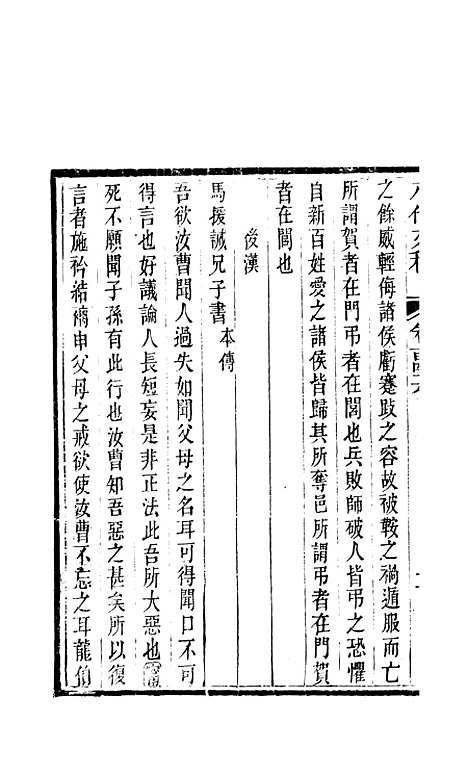 之餘威輕侮諸侯虧蹇跂之容故被鞍之禍遁服而亡
所謂賀者在門弔者在閭也兵敗師破人皆弔之恐懼
自新百姓愛之諸侯皆歸其所奪邑所謂弔者在門賀
者在閭也
後漢
馬援誡兄子書本傳
吾欲汝曹聞人過失如聞父母之名耳可得聞口不可
得言也好議論人長短妄是非正法此吾所大惡也
死不願聞子孫有此行也汝曹知吾惡之甚矣所以復
言者施衿結褵申父母之戒欲使汝曹不忘之耳龍伯